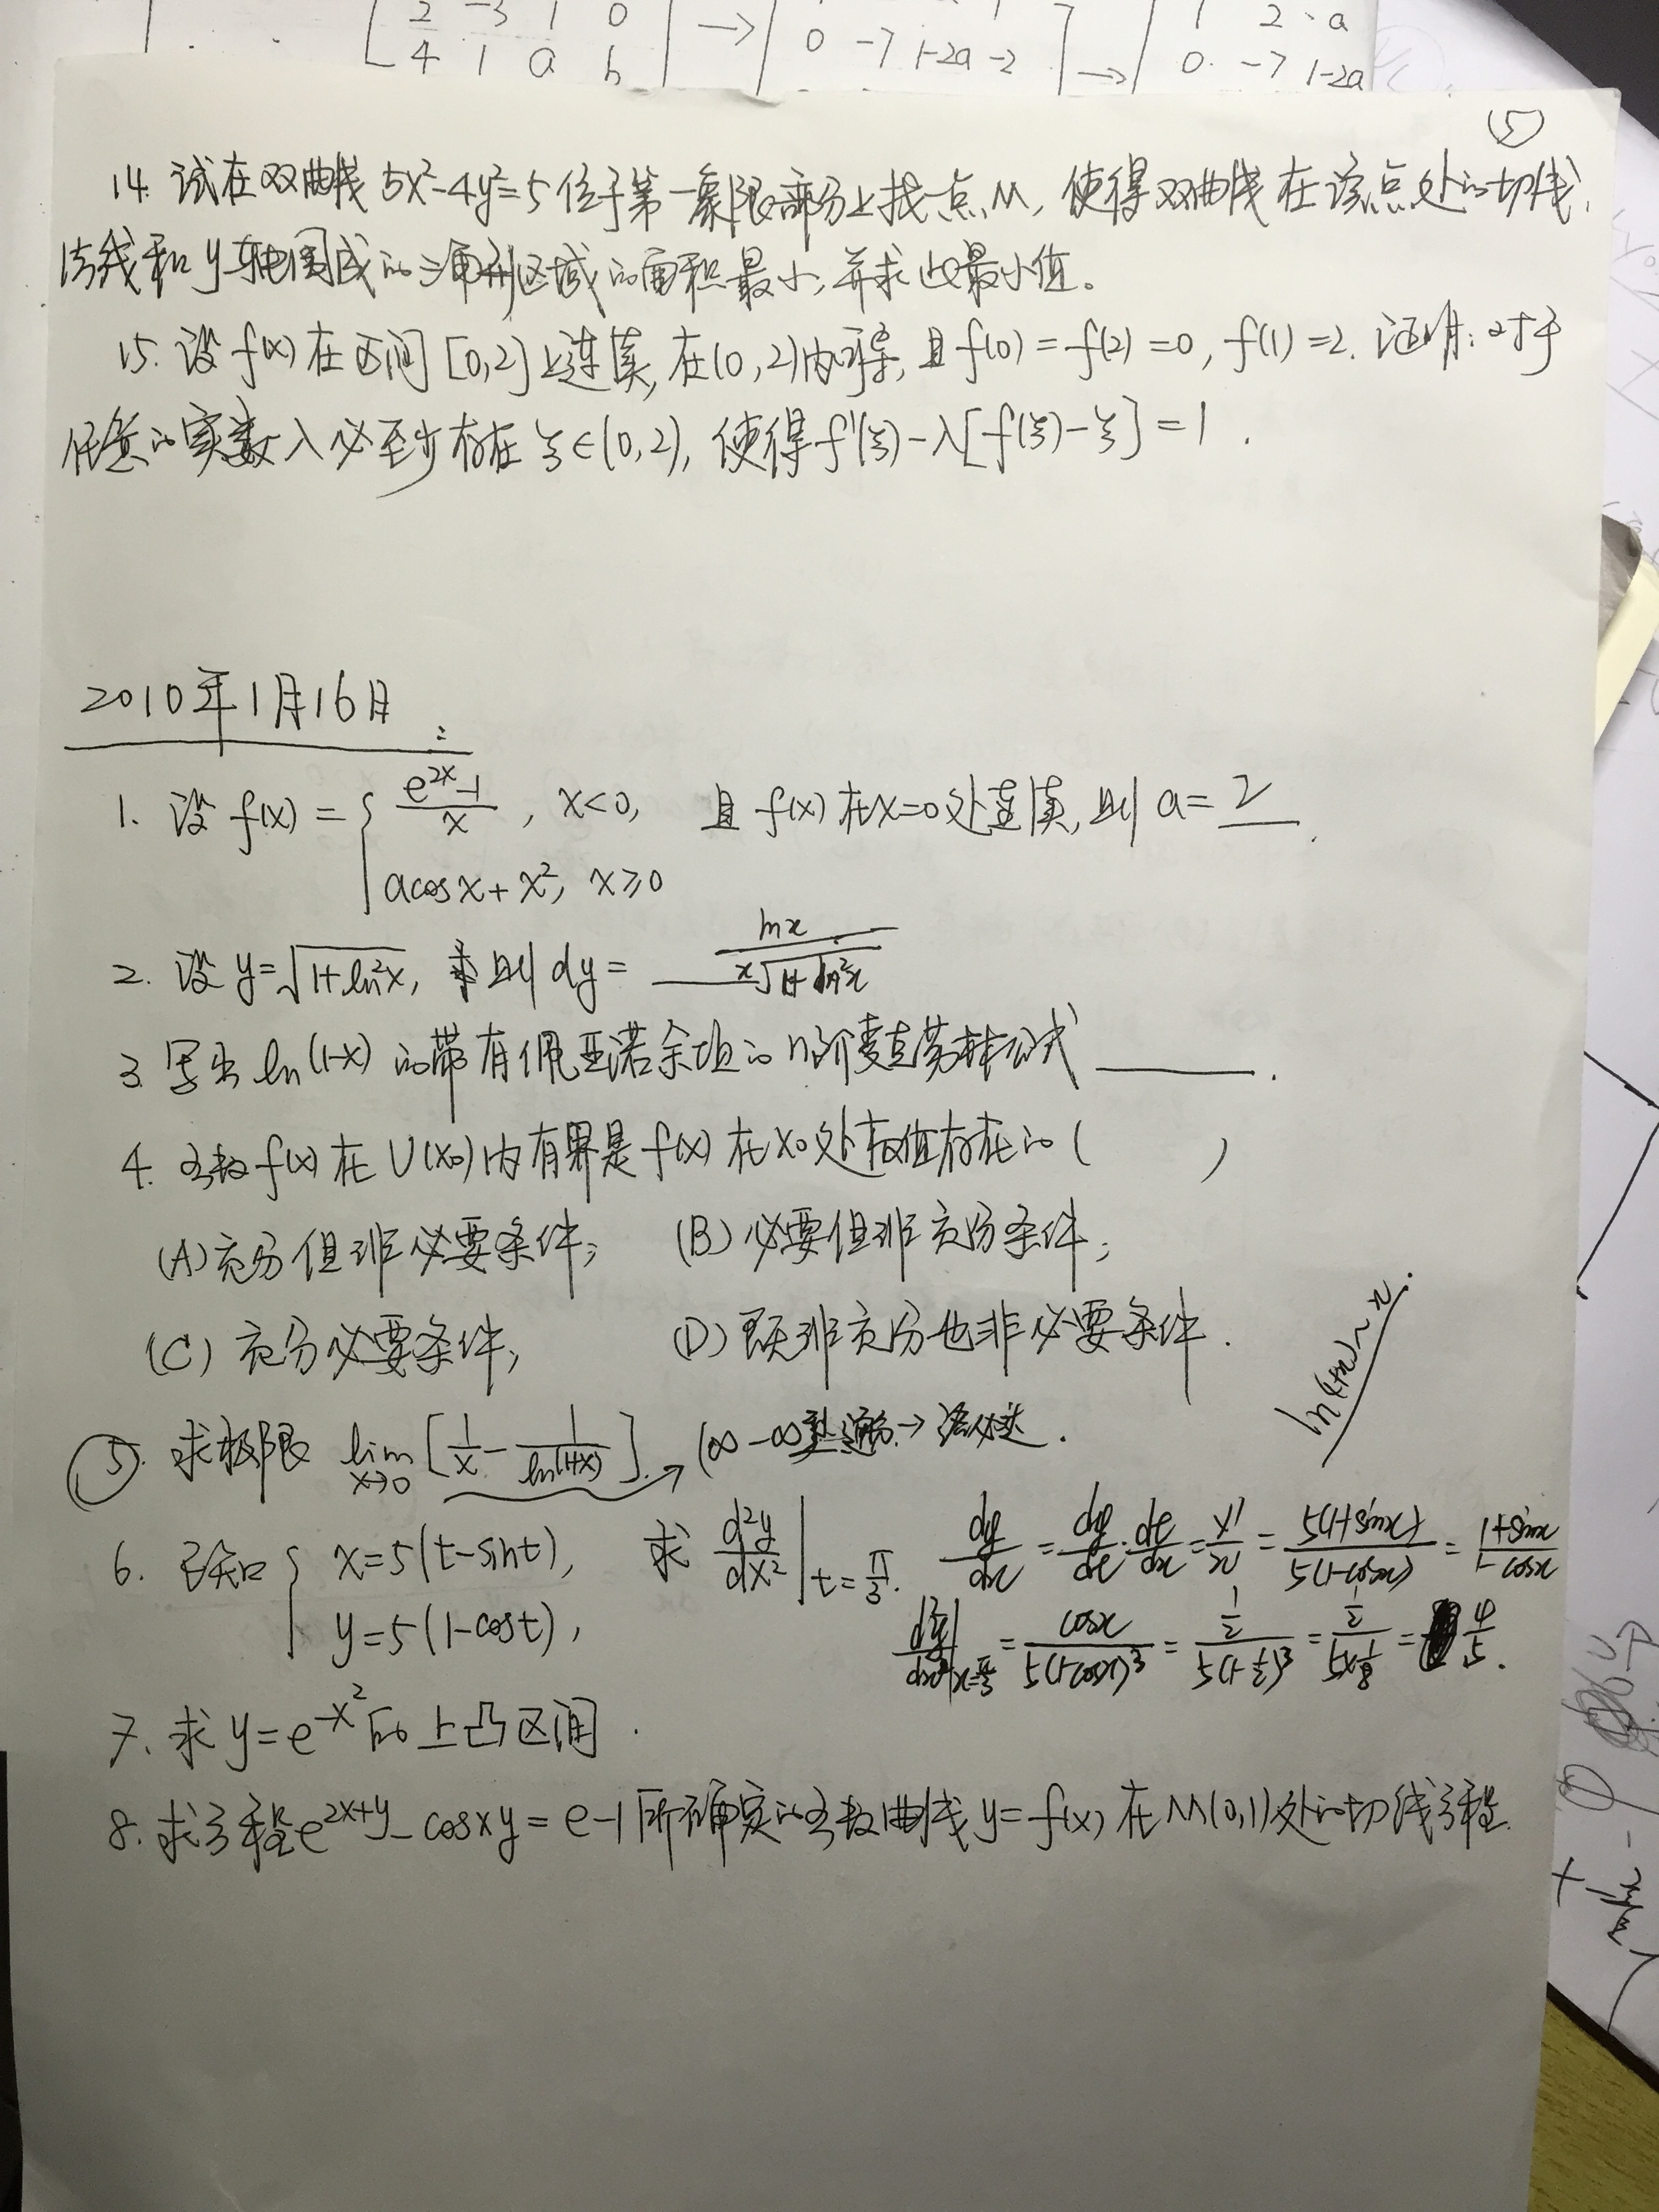 2 -3 1 0
4 1 a b → 0 -7 1-2a -2 → 1 2 · a
0 -7 1-2a
⑤
14. 试在双曲线 5x²-4y²=5 位于第一象限部分上找一点M, 使得双曲线在该点处的切线、
法线和y轴围成的三角形区域的面积最小, 并求此最小值.
15. 设f(x)在区间[0,2]上连续, 在(0,2)内可导, 且f(0)=f(2)=0, f(1)=2. 证明: 对于
任意的实数λ必至少存在ξ∈(0,2), 使得f'(ξ)-λ[f(ξ)-ξ]=1.
2010年1月16日:
1. 设f(x)={ (e^{2x}-1)/x, x<0, 且f(x)在x=0处连续, 则a=2.
acosx+x², x≥0
2. 设y=√(1+ln²x), 则dy= lnx/(x√(1+ln²x))
3. 写出ln(1-x)的带有佩亚诺余项的n阶麦克劳林公式______.
4. 函数f(x)在U(x₀)内有界是f(x)在x₀处极值存在的( )
(A) 充分但非必要条件; (B) 必要但非充分条件;
(C) 充分必要条件; (D) 既非充分也非必要条件.
ln(1+x)~x.
⑤. 求极限 lim_{x→0}[1/x - 1/ln(1+x)]. → (∞-∞型 通分→洛必达.
6. 已知{ x=5(t-sint), 求 d²y/dx²|_{t=π/3}. dy/dx = dy/dt · dt/dx = y'/x' = 5(1+sinx)/5(1-cosx) = 1+sinx/1-cosx
y=5(1-cost), d²y/dx²|_{x=π/3} = cosx/5(1-cosx)³ = ½/5(1-½)³ = ½/5×⅛ = 4/5.
7. 求y=e^{-x²}的上凸区间.
8. 求方程e^{2x+y}-cosxy=e-1所确定的函数曲线y=f(x)在M(0,1)处的切线方程.